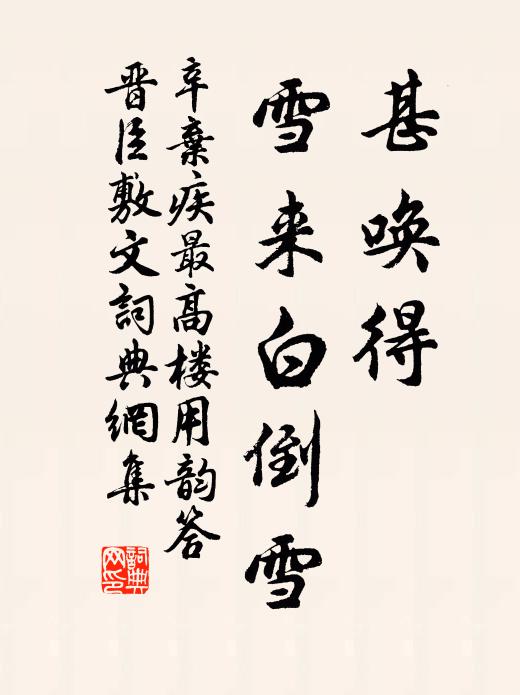 甚唤得
雪来白倒雪
辛棄疾最高楼用韵答
晋臣敷文詞典網集
詞典网印